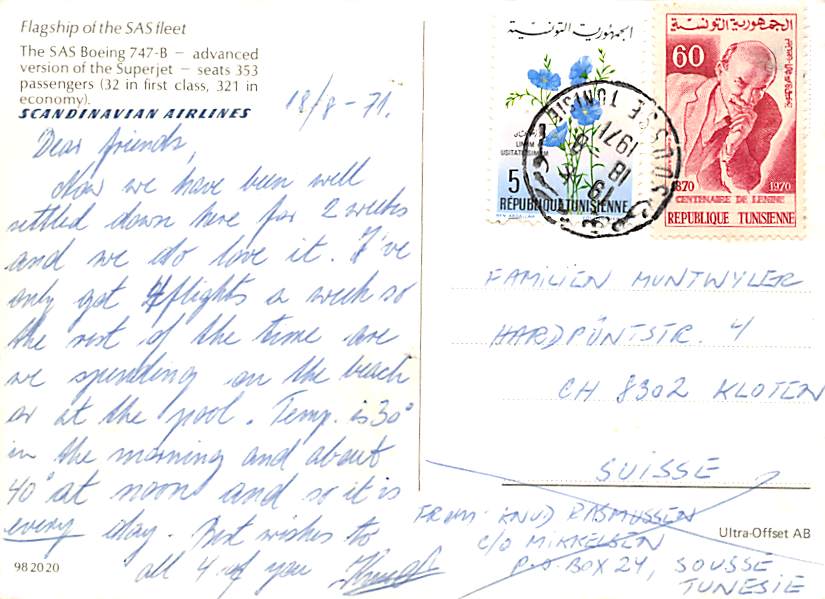 Flagship of the SAS fleet
The SAS Boeing 747-B – advanced
version of the Superjet – seats 353
passengers (32 in first class, 321 in
economy).
SCANDINAVIAN AIRLINES
18/8-71.
Dear friends,
Now we have been well
settled down here for 2 weeks
and we do love it. I've
only got 4 flights a week so
the rest of the time are
we spending on the beach
or at the pool. Temp. is 30°
in the morning and about
40° at noon and so it is
every day. Best wishes to
all 4 of you Knud
98 20 20
الجمهورية التونسية
LINUM
USITATISSIMUM
5
RÉPUBLIQUE TUNISIENNE
الجمهورية التونسية
60
1870 1970
CENTENAIRE DE LENINE
REPUBLIQUE TUNISIENNE
SOUSSE TUNISIE
19
18 -8
1971
FAMILIEN MUNTWYLER
HARDPÜNTSTR. 4
CH 8302 KLOTEN
SUISSE
FROM: KNUD RASMUSSEN
C/O MIKKELSEN
P.O. BOX 24, SOUSSE
TUNESIE
Ultra-Offset AB